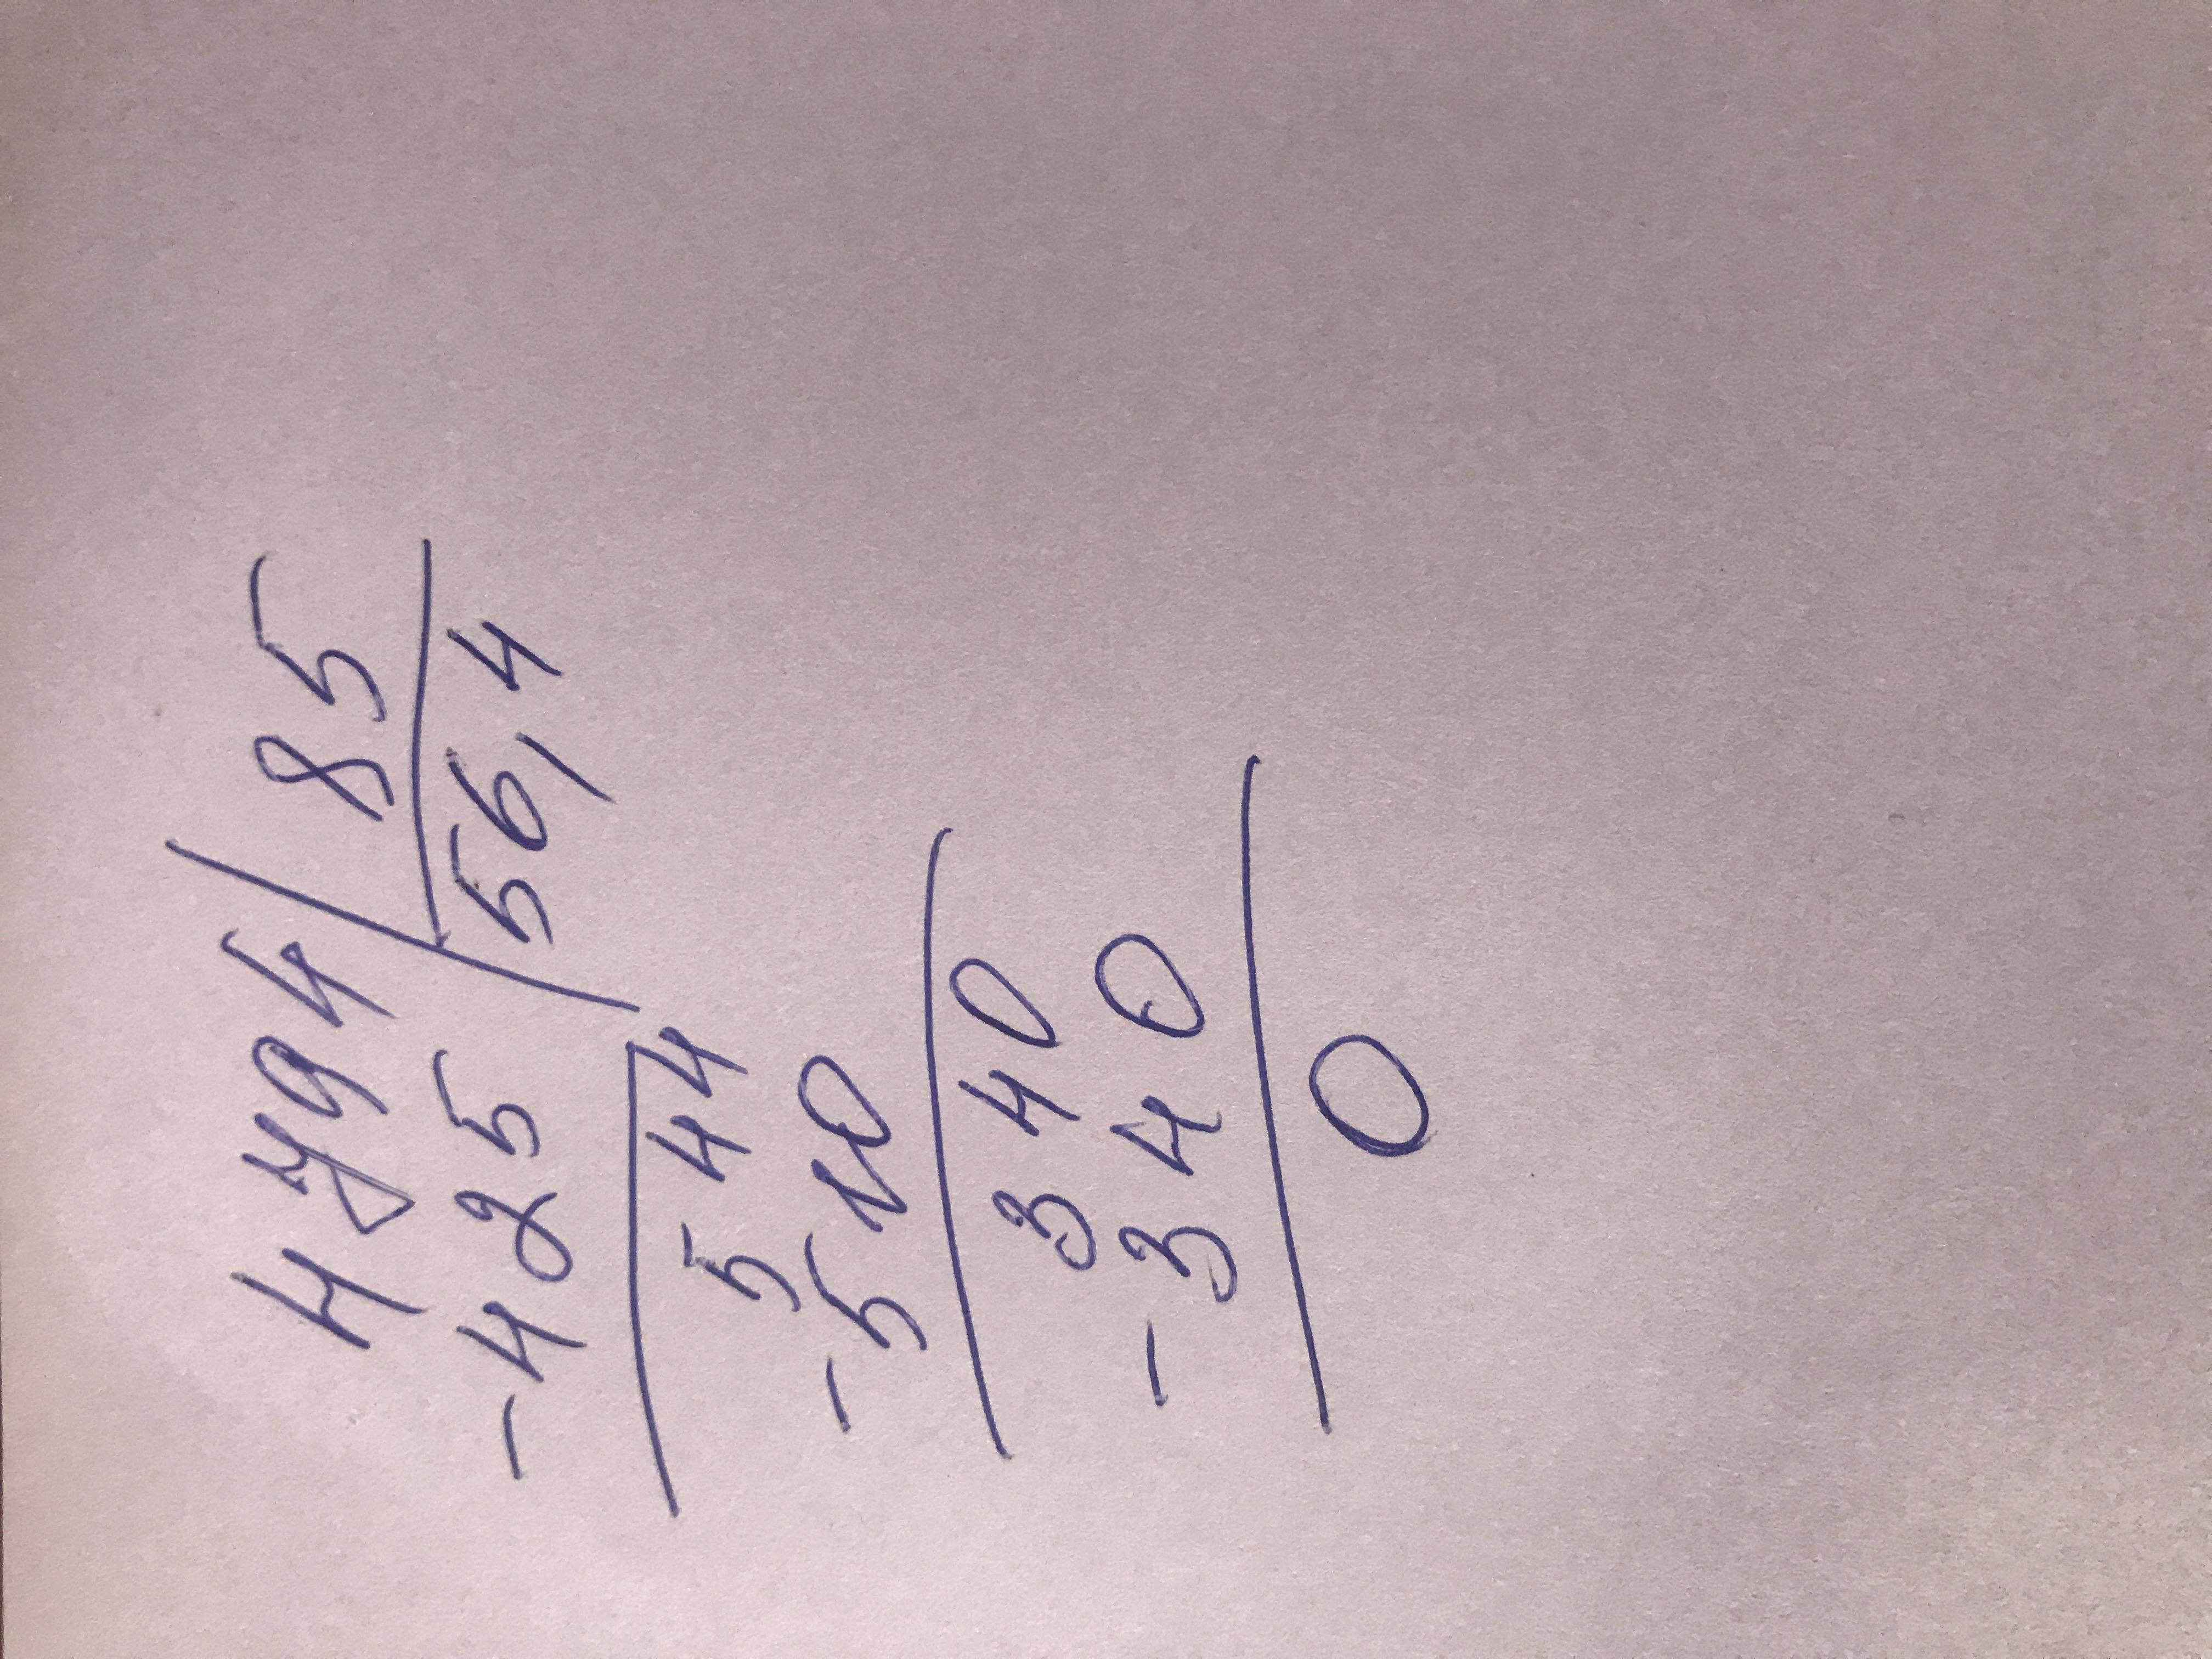 4794 85
-425 56,4
544
-510
340
-340
0